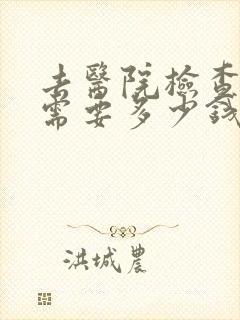 去醫院檢查
需要多少錢
洪城農